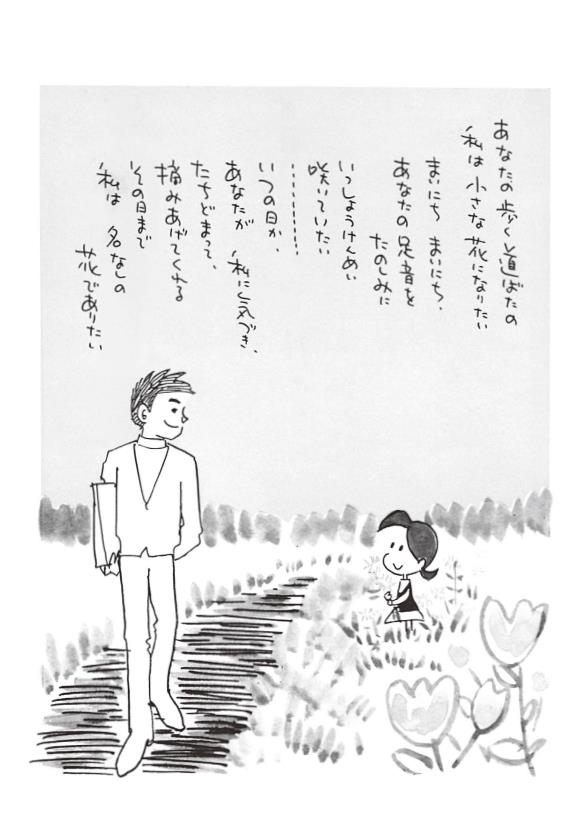 あなたの歩く道ばたの
私は 小さな花になりたい
まいにち まいにち、
あなたの足音を
たのしみに
いっしょうけんめい
咲いていたい
………
いつの日か、
あなたが 私に気づき、
たちどまって、
摘みあげてくれる
その日まで
私は 名なしの
花でありたい